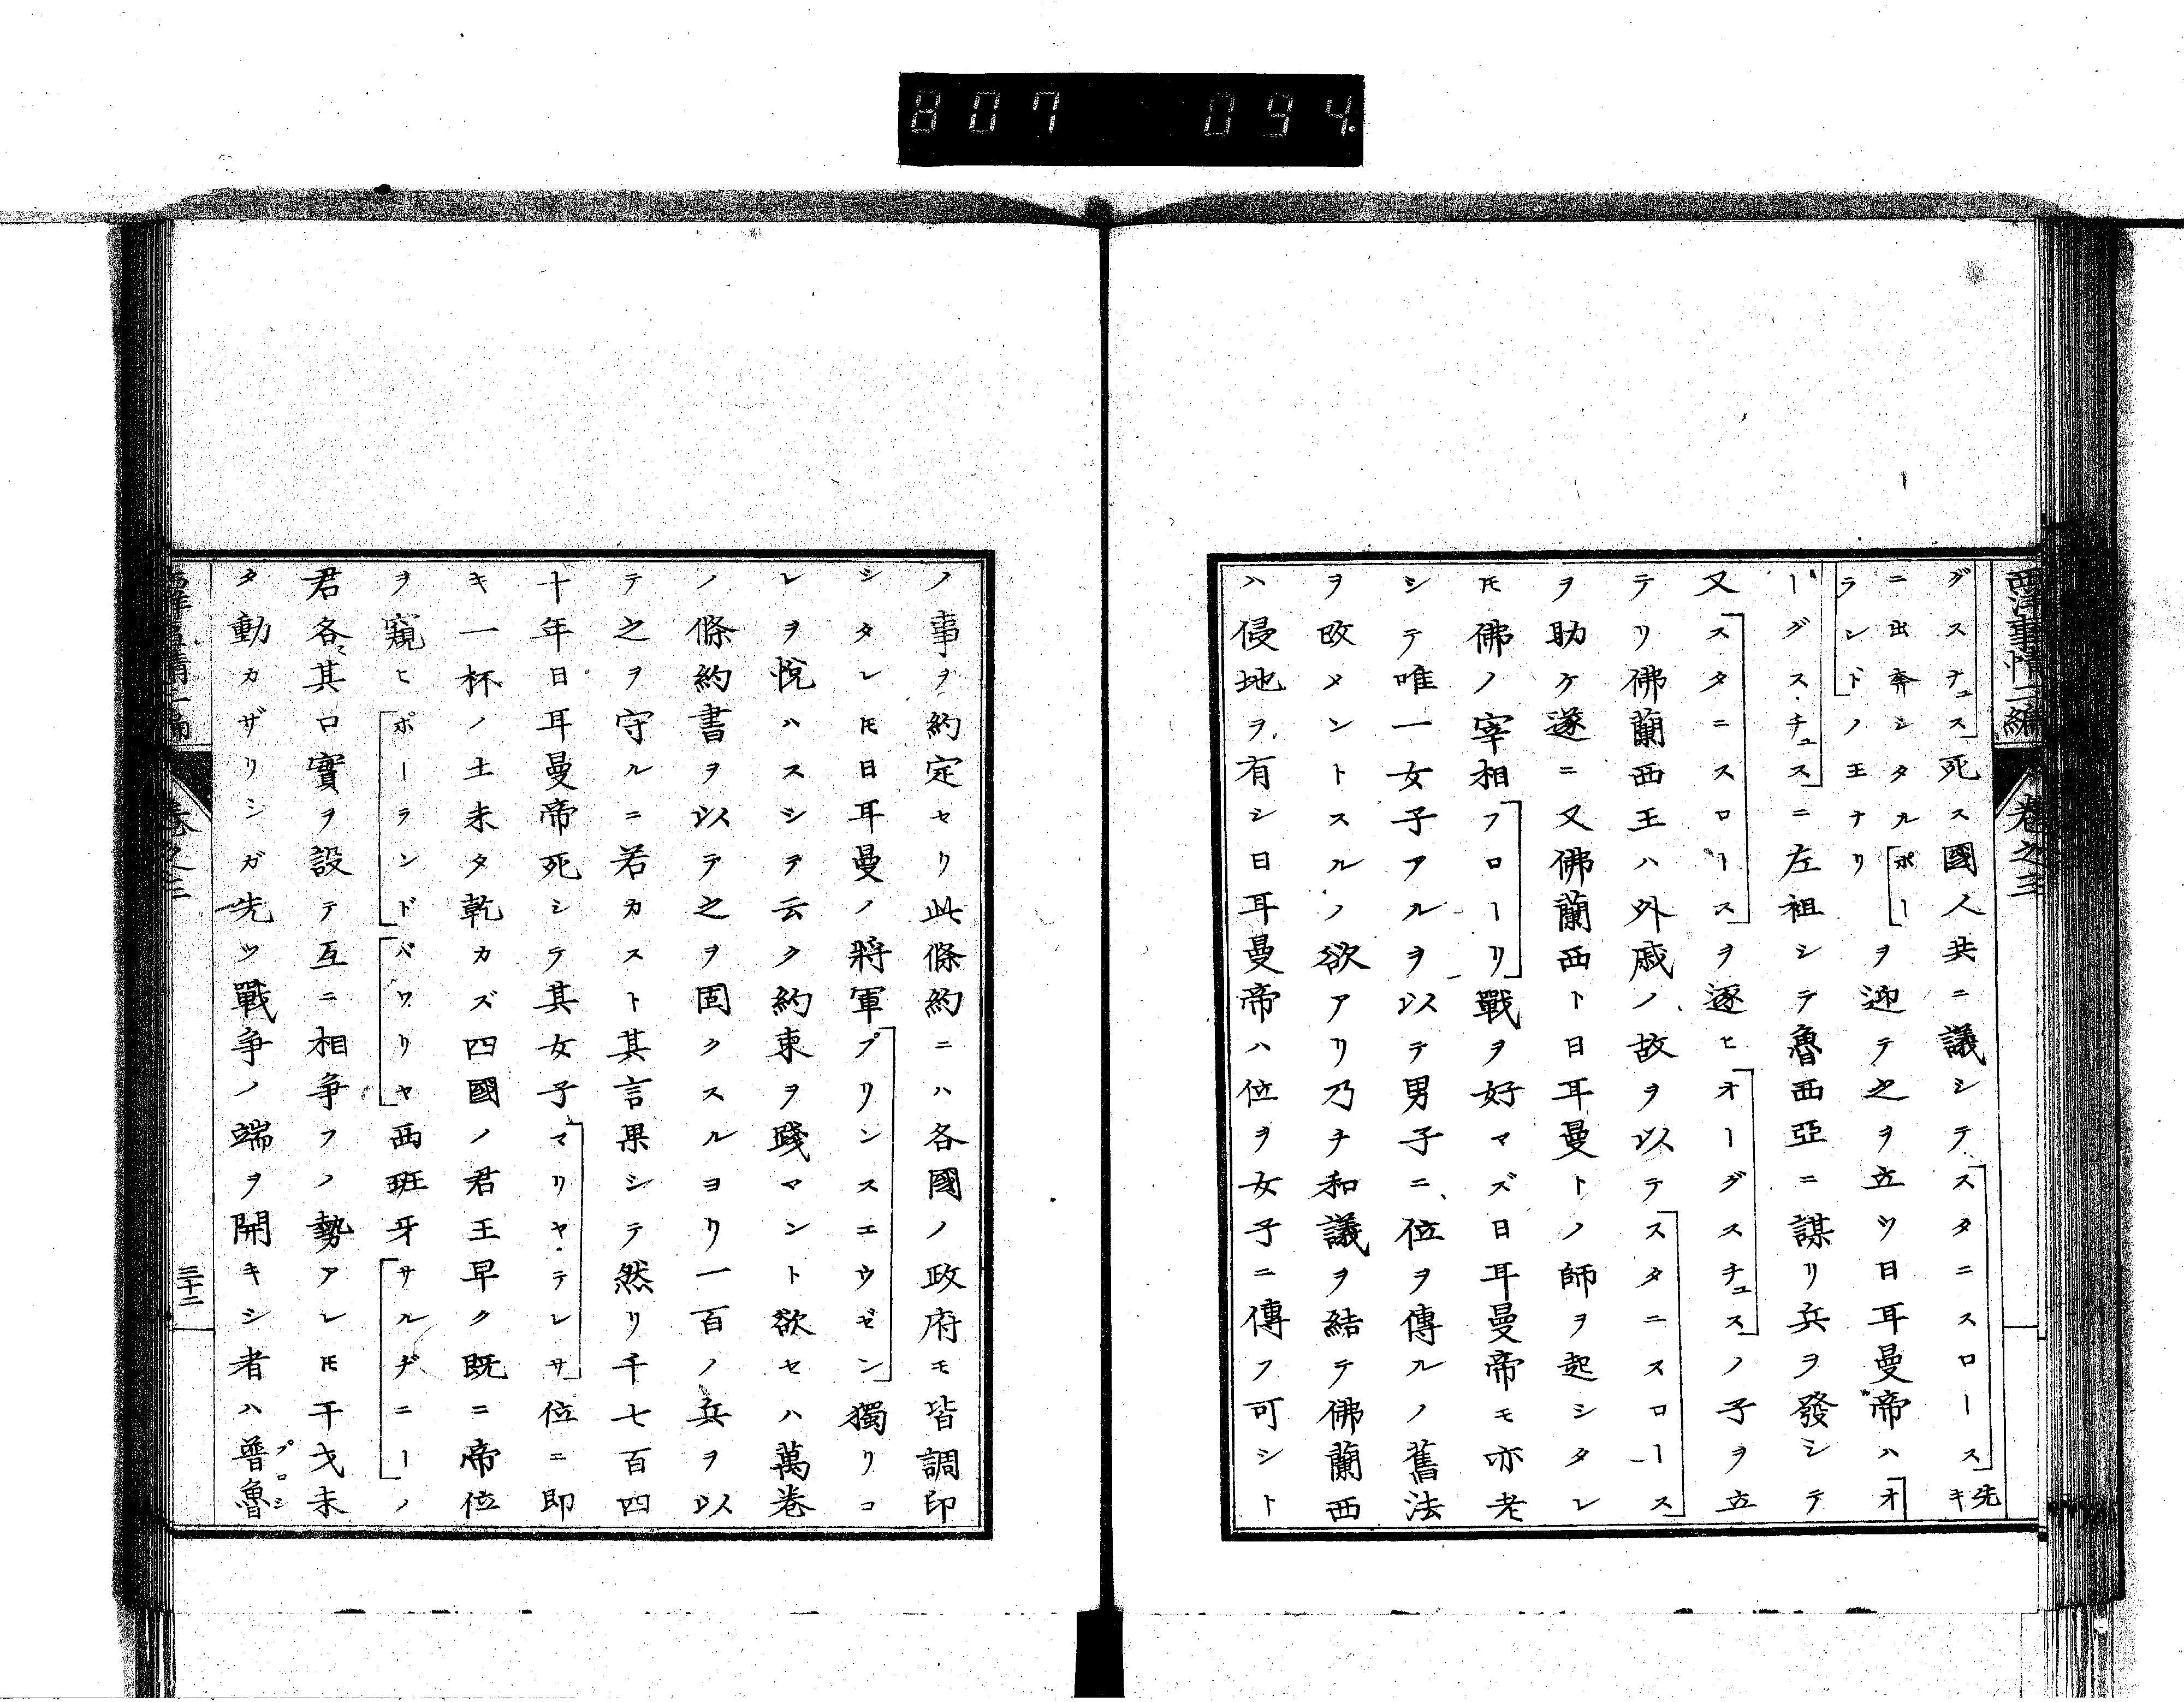 807 094
西洋事情二編 卷之三
グスチュス死ス國人共ニ議シテスタニスロース先キ
ニ出奔シタルポーランドノ王ナリヲ迎テ之ヲ立ツ日耳曼帝ハオ
ーグスチュスニ左袒シテ魯西亞ニ謀リ兵ヲ發シテ
又スタニスロースヲ逐ヒオーグスチュスノ子ヲ立
テリ佛蘭西王ハ外戚ノ故ヲ以テスタニスロース
ヲ助ケ遂ニ又佛蘭西ト日耳曼トノ師ヲ起シタレ
𪜈佛ノ宰相フローリ戰ヲ好マズ日耳曼帝モ亦老
シテ唯一女子アルヲ以テ男子ニ位ヲ傳ルノ舊法
ヲ改メントスルノ欲アリ乃チ和議ヲ結テ佛蘭西
ハ侵地ヲ有シ日耳曼帝ハ位ヲ女子ニ傳フ可シト
ノ事ヲ約定セリ此條約ニハ各國ノ政府モ皆調印
シタレ𪜈日耳曼ノ將軍プリンスエウゼン獨リコ
レヲ悅ハスシテ云ク約束ヲ踐マント欲セハ萬卷
ノ條約書ヲ以テ之ヲ固クスルヨリ一百ノ兵ヲ以
テ之ヲ守ルニ若カスト其言果シテ然リ千七百四
十年日耳曼帝死シテ其女子マリヤ・テレサ位ニ即
キ一杯ノ土未タ乾カズ四國ノ君王早ク既ニ帝位
ヲ窺ヒポーランドバワリヤ西班牙サルヂニーノ
君各〻其口實ヲ設テ互ニ相爭フノ勢アレ𪜈干戈未
タ動カザリシガ先ツ戰爭ノ端ヲ開キシ者ハ普魯プロシ
西洋事情二編 卷之三 三十二